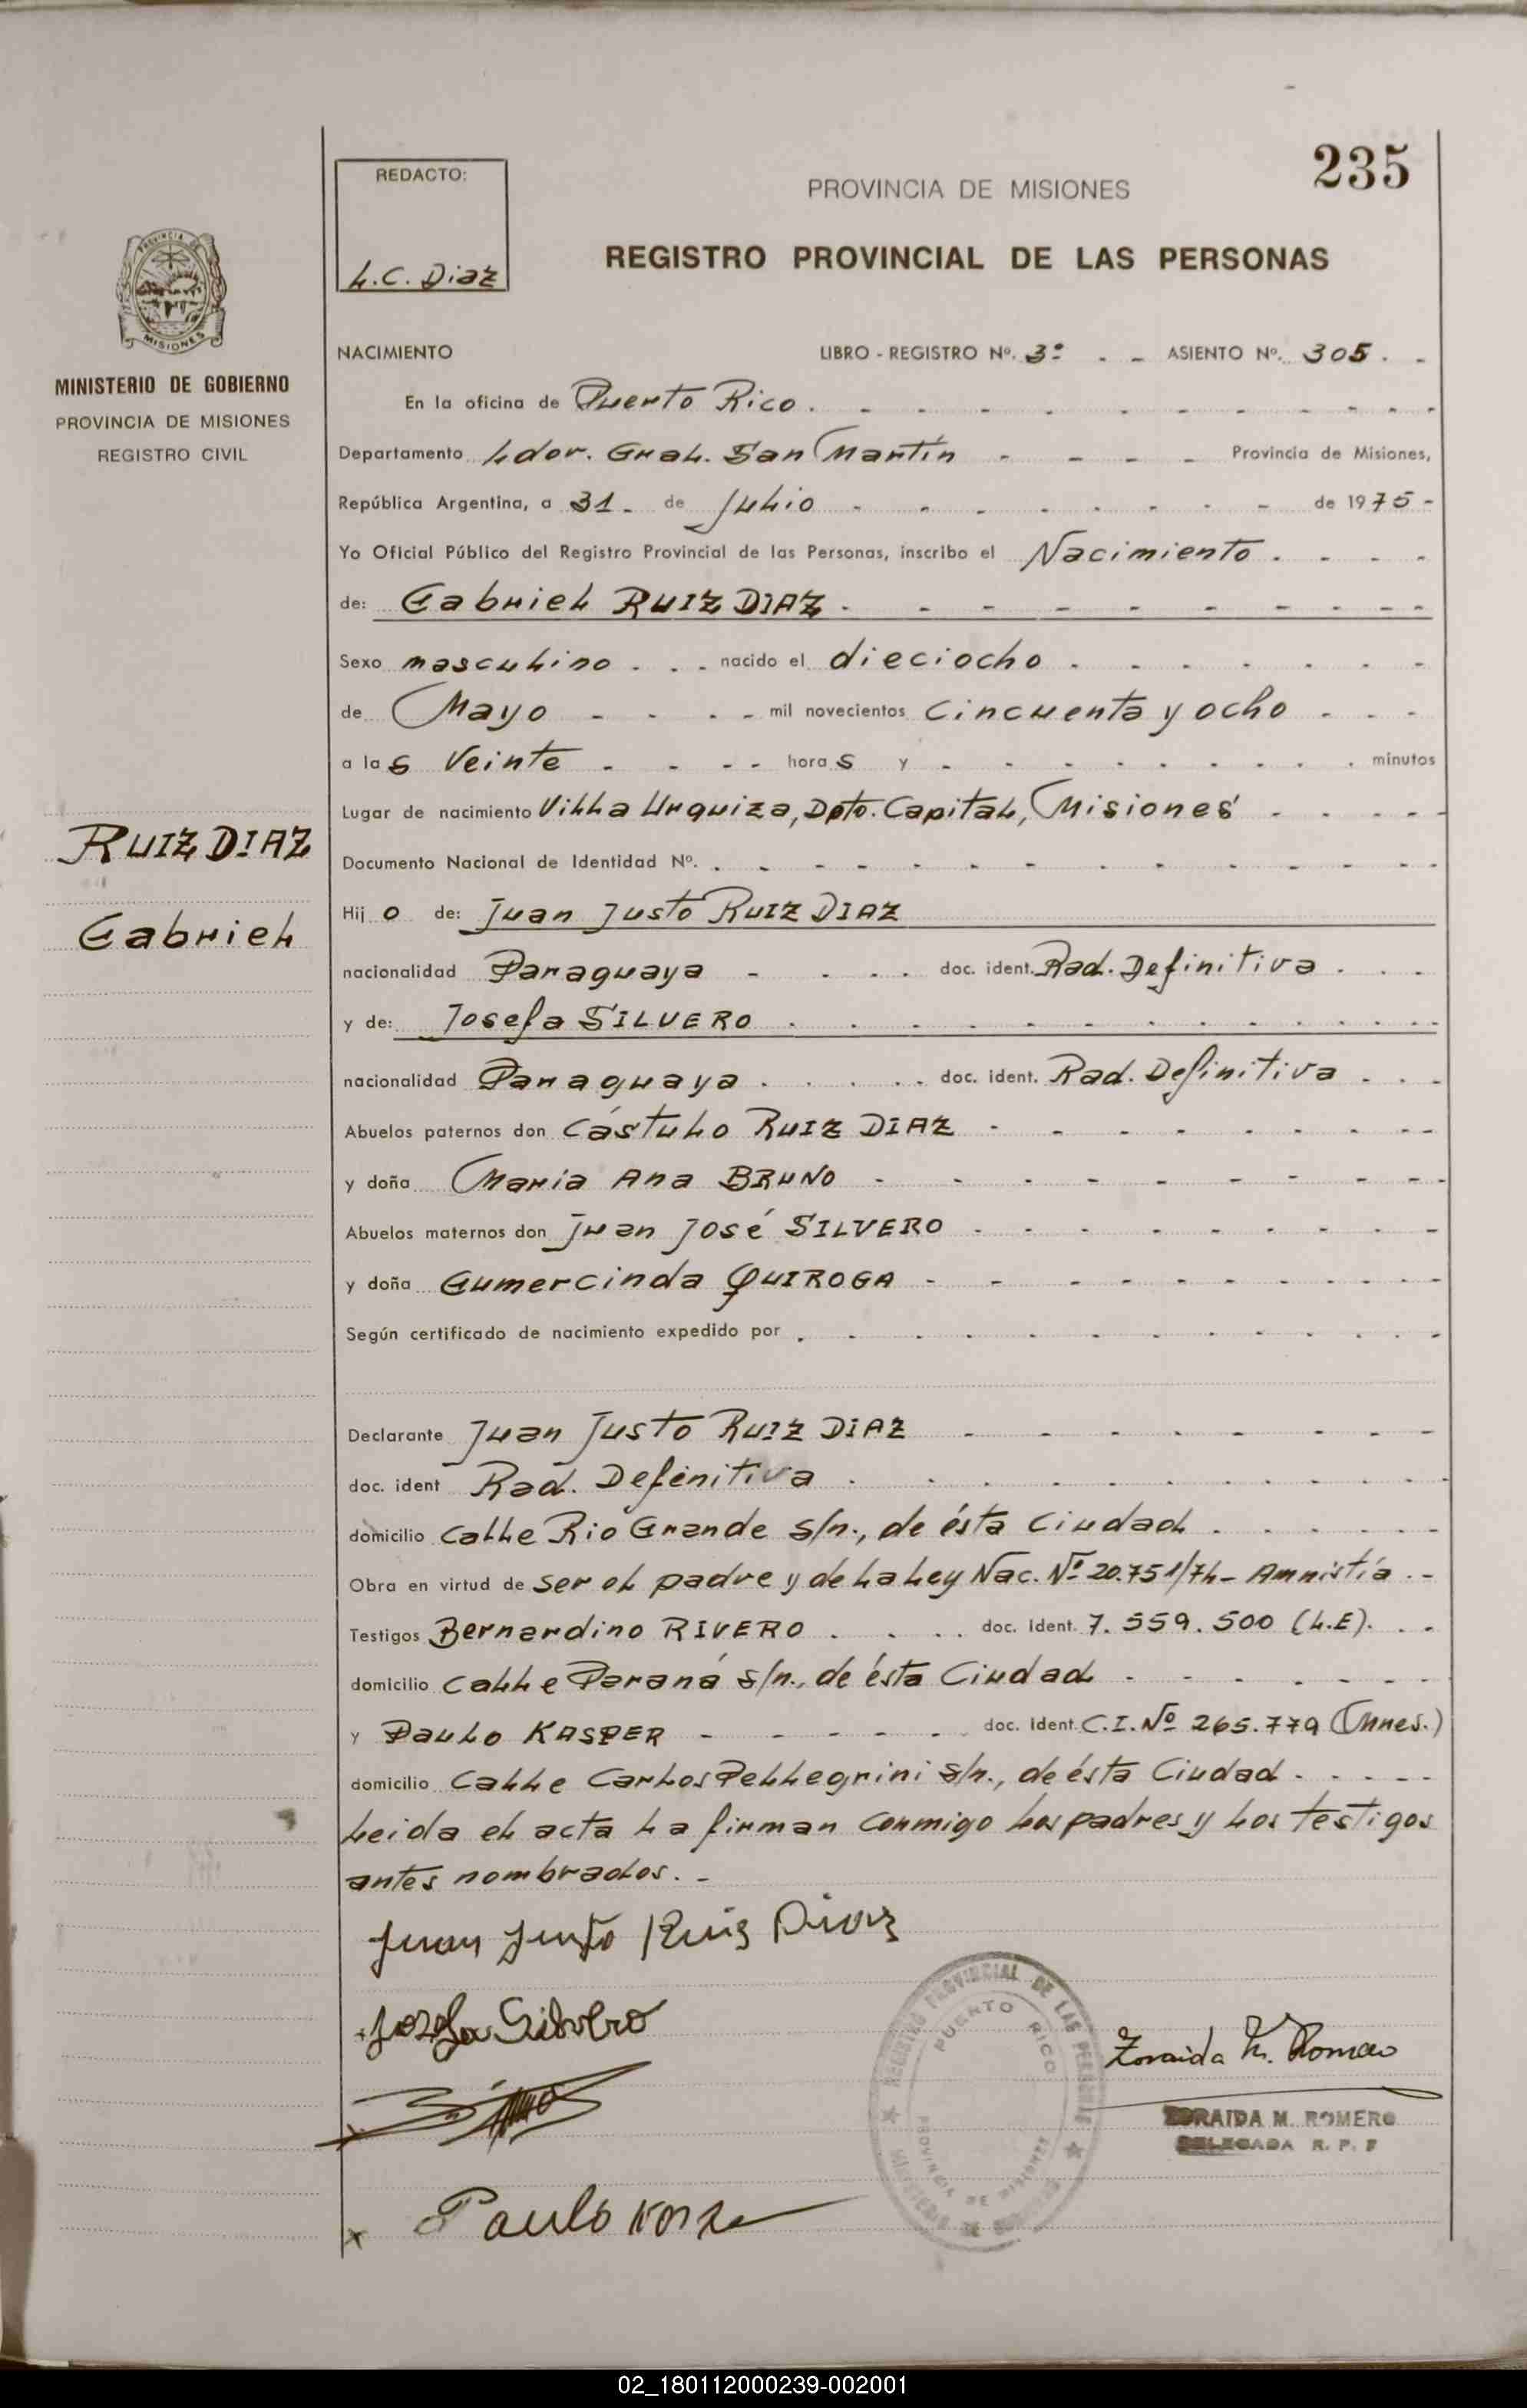 235
REDACTO:
L.C. Diaz
PROVINCIA DE MISIONES
REGISTRO PROVINCIAL DE LAS PERSONAS
PROVINCIA DE
MISIONES
MINISTERIO DE GOBIERNO
PROVINCIA DE MISIONES
REGISTRO CIVIL
RUIZ DIAZ
Gabriel
NACIMIENTO LIBRO - REGISTRO Nº. 3º - - ASIENTO Nº. 305. -
En la oficina de Puerto Rico.
Departamento Ldor. Gral. San Martín - - - - Provincia de Misiones,
República Argentina, a 31. de Julio - - - - de 1975 -
Yo Oficial Público del Registro Provincial de las Personas, inscribo el Nacimiento.
de: Gabriel RUIZ DIAZ.
Sexo masculino . . . nacido el dieciocho .
de Mayo - - - - mil novecientos cincuenta y ocho
a las veinte - - - - horas y - - - - minutos
Lugar de nacimiento Villa Urquiza, Dpto. Capital, Misiones
Documento Nacional de Identidad Nº.
Hijo de: Juan Justo RUIZ DIAZ
nacionalidad Paraguaya - . . . doc. ident. Rad. Definitiva .
y de: Josefa SILVERO .
nacionalidad Paraguaya . . . . doc. ident. Rad. Definitiva .
Abuelos paternos don Cástulo RUIZ DIAZ -
y doña María Ana BRUNO -
Abuelos maternos don Juan José SILVERO -
y doña Gumercinda QUIROGA -
Según certificado de nacimiento expedido por
Declarante Juan Justo RUIZ DIAZ -
doc. ident Rad. Definitiva .
domicilio Calle Rio Grande s/n., de ésta Ciudad .
Obra en virtud de ser el padre y de la Ley Nac. Nº 20.751/74- Amnistía . -
Testigos Bernardino RIVERO . . . . doc. Ident. 7.559.500 (L.E). . -
domicilio Calle Paraná s/n., de ésta Ciudad -
y Paulo KASPER - - - - doc. Ident. C.I. Nº 265.779 (Mnes.)
domicilio Calle Carlos Pellegrini s/n., de ésta Ciudad - - - -
Leida el acta la firman conmigo los padres y los testigos
antes nombrados. . -
Juan Justo Ruis Diaz
Josefa Silvero
Paulo
REGISTRO PROVINCIAL DE LAS PERSONAS
PUERTO RICO
PROVINCIA DE MISIONES
MINISTERIO DE GOBIERNO
Zoraida M. Romero
ZORAIDA M. ROMERO
DELEGADA R. P. P
02_180112000239-002001